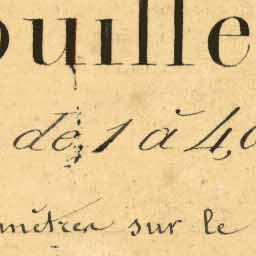 ouille
de 1 à 4,0
mètres sur le